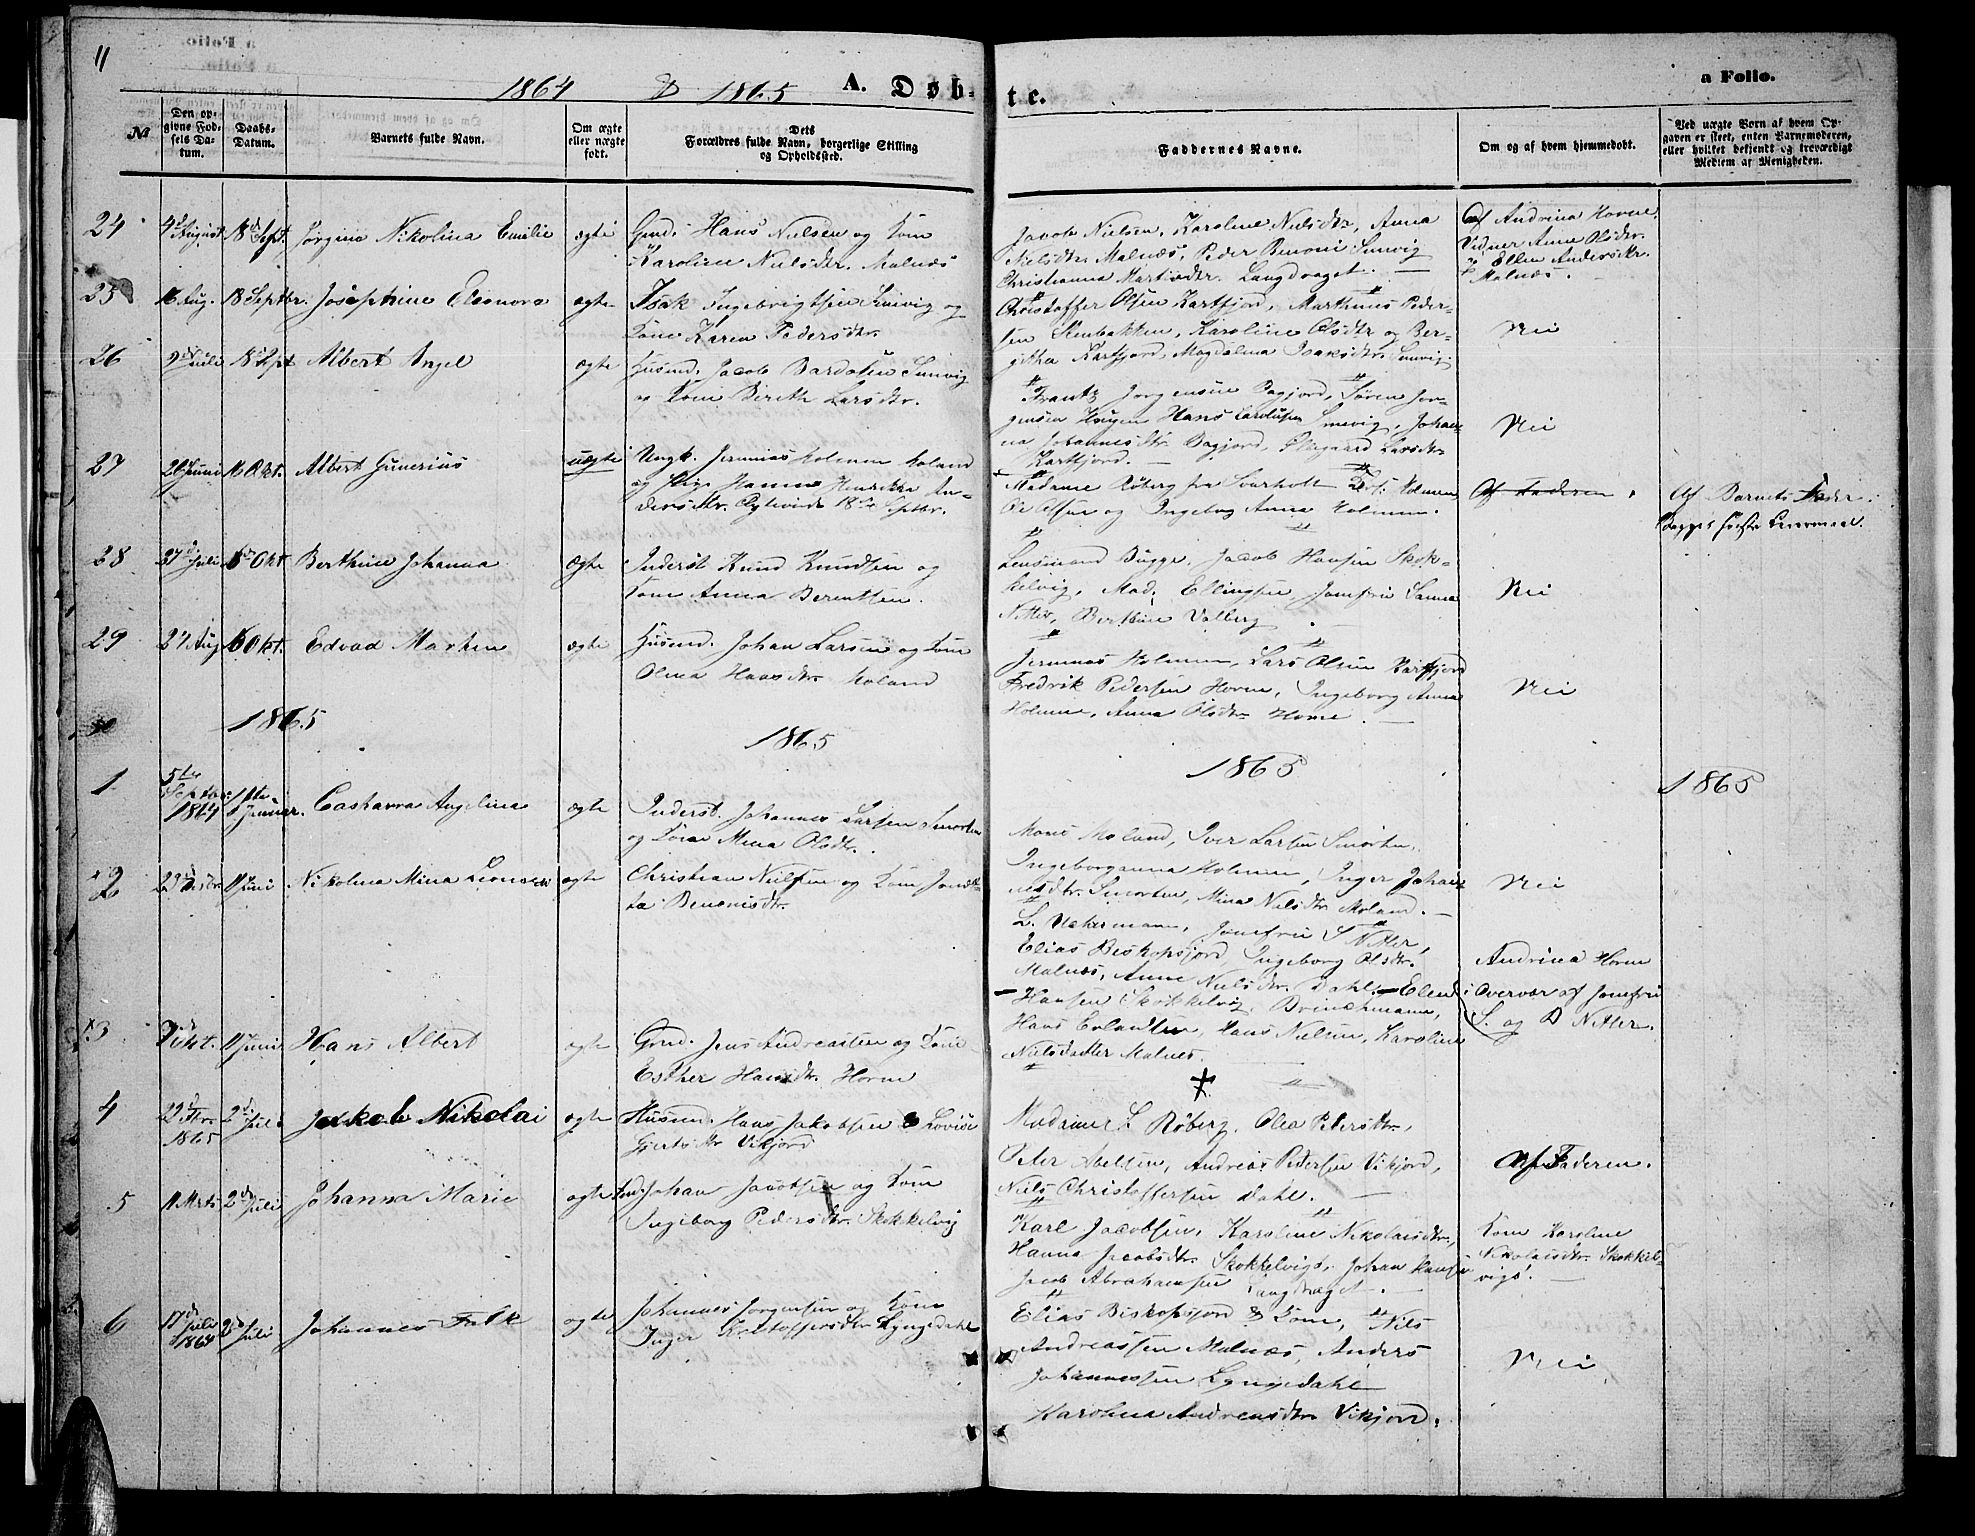 11
1864 & 1865 A. Døb-
te.
a Folio.
№
Den opgivne Fødsels Datum.
Daabs-Datum.
Barnets fulde Navn.
Om ægte eller uægte født.
Dets Forældres fulde Navn, borgerlige Stilling og Opholdssted.
Faddernes Navne.
Om og af hvem hjemmedøbt.
Ved uægte Børn af hvem Opgaven er skeet, enten Barnemoderen, eller hvilket bekjendt og troværdigt Medlem af Menigheden.
24
4d August
18d Sept.
Jørgine Nikolina Emilie
ægte
Gmd. Hans Nielsen og Kone
Karoline Nielsdtr. Malnæs
Jacob Nielsen, Karoline Nielsdtr, Anna
Nielsdtr. Malnæs, Peder Benoni Smevig
Christianna Martisdtr. Langdraget.
Af Andrina Horne.
Vidner Anne Olsdtr.
& Ellen Andersdtr.
Malnæs.
25
16 Aug.
18 Septbr.
Josephine Eleonora
ægte
Isak Ingebrigtsen Smevig og
Kone Karen Pedersdtr.
Christoffer Olsen Kartfjord, Marthinus Peder-
sen Stenbakken, Karoline Olsdtr og Ber-
githa Kartfjord, Magdalena Isaksdtr. Smevig.
Nei
26
9d Juli
18 Sept
Albert Angel
ægte
Husmd. Jacob Bardosen Smevig
og Kone Berith Larsdtr.
Frantz Jørgensen Bogfjord, Søren Jør-
gensen Haugen, Hans Carolusen Smevig, Johan-
na Johannesdtr. Bogfjord, Ellegaard Larsdtr
Kartfjord.
Nei
27
26 Juni
16 Okt.
Albert Gunerius
uægte
Ungk. Jeremias Holmen Moland
og Pige Hanna Henrikke An-
dersdtr.
Septbr.
Madame Røberg fra Svarholt
Holmen
Ole Olsen og Ingeborg Anna Holmen.
Af Faderen.
Af Barnets Fader
Begges første Leiermaal.
28
31d Juli
16 Okt
Berthine Johanna
ægte
Inderst Knud Knudsen og
Kone Anna Berentsen.
Lensmand Bugge, Jacob Hansen Skok-
kelvig, Mad. Ellingsen, Jomfrue Sanna
Nitter, Berthine Valberg.
Nei
29
27 Aug
16 Okt.
Edvad Martin
ægte
Husmd. Johan Larsen og Kone
Olina Hansdtr. Moland
Jeremias Holmen, Lars Olsen Kartfjord
Fredrik Pedersen Horne, Ingeborg Anna
Holmen, Anna Olsdtr. Horne.
Nei
1865
1865
1865
1865
1
5te Septbr. 1864
1ste Januar.
Casharra Angelina
ægte
Inderst. Johannes Larsen Smorten
og Kone Mina Olsdtr.
Mons Moland, Iver Larsen Smorten,
Ingeborganna Holmen, Inger Johan-
nesdtr. Smorten, Mina Nielsdtr Moland.
Nei
2
11 Juni
Nikolina Mina Leonard
ægte
Christian Nielsen og Kone Jonet-
ta Benonisdtr.
L. Uchermann, Jomfrue S Nitter,
Elias Biskopsjord, Ingeborg Olsdtr.
Malnæs, Anne Nielsdtr Dahl. Elen
Hansen Skokkelvig Brinchmann,
Andrina Horne
Overvær af Jomfrue
S. og D Nitter.
3
11 Juni
Hans Albert
ægte
Gmd. Jens Andreassen og Kone
Esther Hansdtr. Horne
Hans Erlandsen, Hans Nielsen, Karoline
Nielsdatter Malnes.
4
1865
2d Juli
Jakob Nikolai
ægte
Husmd. Hans Jakobsen & Lovise
Gjertsdtr Vikjord
Madame L Røberg. Olea Petersdtr,
Peter Abelsen, Andreas Pedersen Vikjord,
Niels Christoffersen Dahl.
Af Faderen.
5
11 Marts
2d Juli
Johanna Marie
ægte
Ind. Johan Jacobsen og Kone
Ingeborg Pedersdtr. Skokkelvig
Karl Jacobsen, Karoline Nikolaisdtr.,
Hanna Jacobsdtr. Skokkelvig, Johan Hansen
Jacob Abrahamsen Langdraget.
Kone Karoline
Nikolaisdtr. Skokkel-
vigs.
6
17d Juli 1864
2d Juli
Johannes Falk
ægte
Johannes Jørgensen og Kone
Inger Kristoffersdtr Lyngedahl
Elias Biskopsjord & Kone, Nils
Andreassen Malnæs, Anders
Johannessen Lyngedahl
Karolina Andreasdtr Vikjord.
Nei